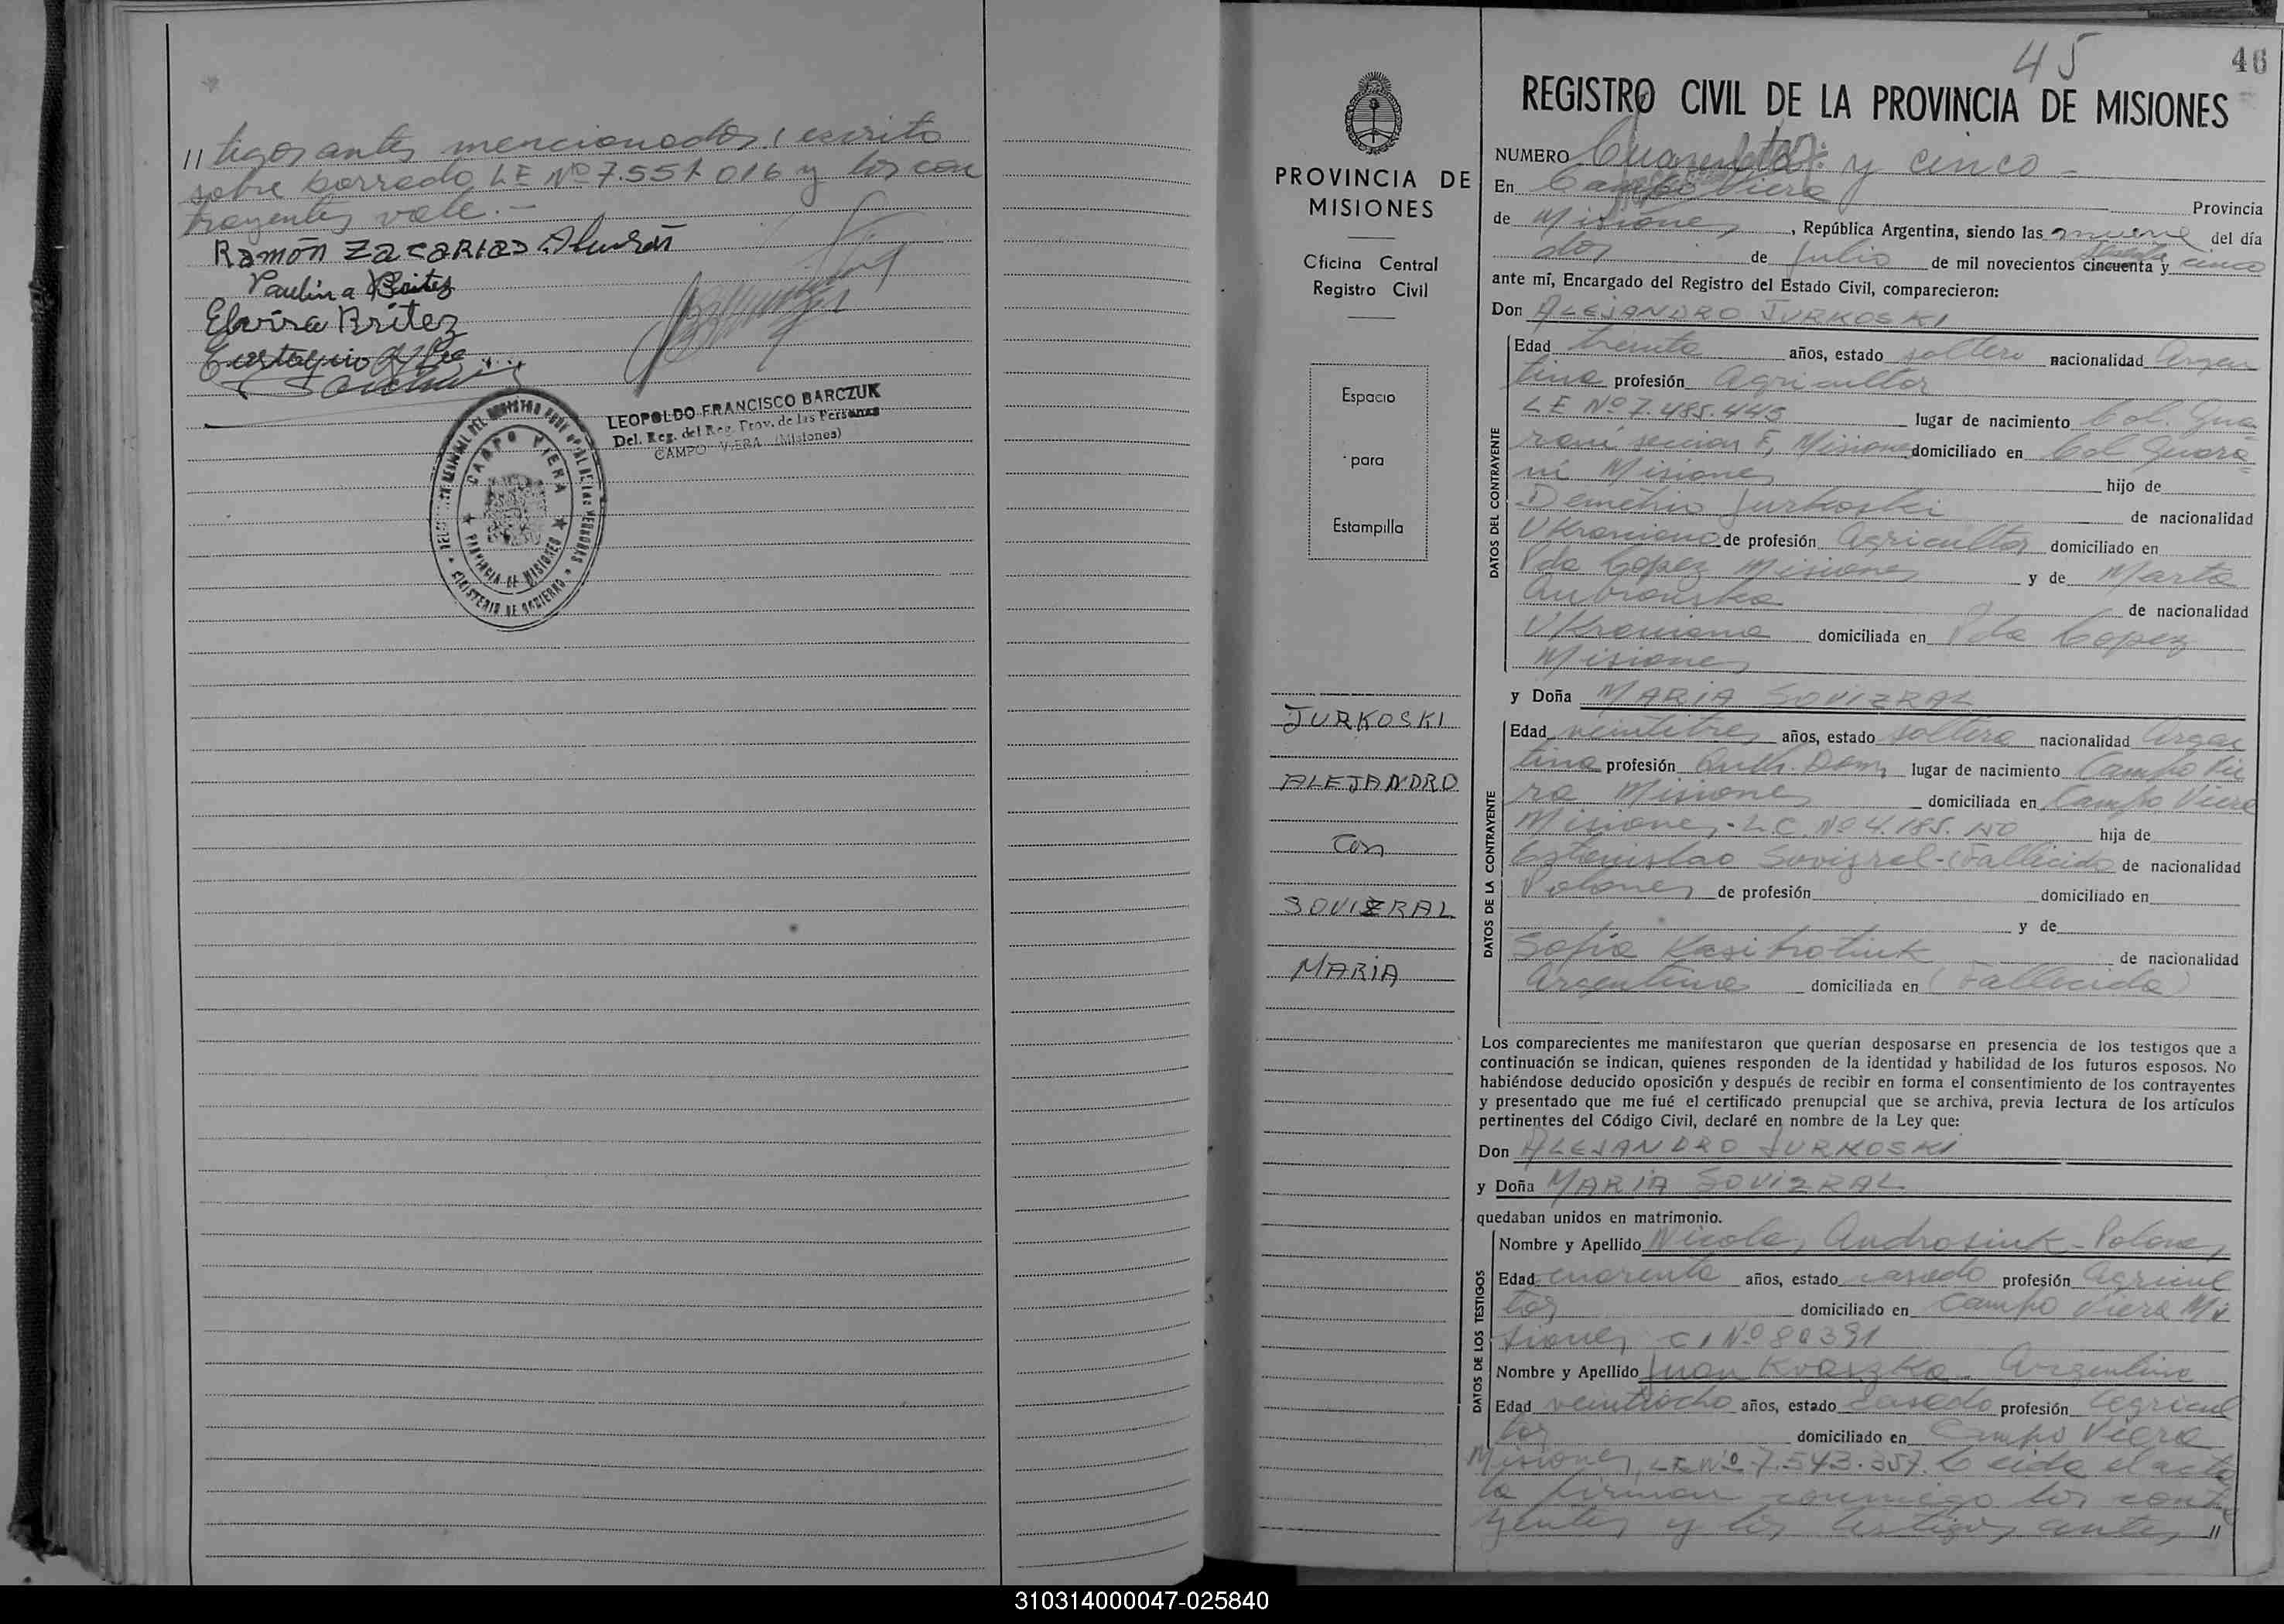 // tigos antes mencionados, escrito
sobre borrado LE Nº 7.551.016 y los con
trayentes vale.-
Ramón Zacarias
Paulina Britez
Elvira Britez
Eustaquio
LEOPOLDO FRANCISCO BARCZUK
Del. Reg. del Reg. Prov. de las Personas
CAMPO VIERA (Misiones)
CAMPO VIERA
PROVINCIA DE MISIONES
MINISTERIO DE GOBIERNO
PROVINCIA DE
MISIONES
Oficina Central
Registro Civil
Espacio
para
Estampilla
JURKOSKI
ALEJANDRO
Con
SOVIZRAL
MARIA
45
46
REGISTRO CIVIL DE LA PROVINCIA DE MISIONES
NUMERO Cuarenta y cinco -
En Campo Viera Provincia
de Misiones, República Argentina, siendo las nueve del día
dos de Julio de mil novecientos cincuenta y sesenta cinco
ante mí, Encargado del Registro del Estado Civil, comparecieron:
Don ALEJANDRO JURKOSKI
DATOS DEL CONTRAYENTE
Edad treinta años, estado soltero nacionalidad Argen
tina profesión Agricultor
LE Nº 7.485.445 lugar de nacimiento Col. Gua-
raní seccion F, Misiones domiciliado en Col Guara=
ní Misiones hijo de
Demetrio Jurkoski de nacionalidad
Ukraniano de profesión Agricultor domiciliado en
Pda Lopez Misiones y de Marta
de nacionalidad
Ukraniana domiciliada en Pda Lopez
Misiones
y Doña MARIA SOVIZRAL
DATOS DE LA CONTRAYENTE
Edad veintitres años, estado soltera nacionalidad Argen
tina profesión Quth. Dom, lugar de nacimiento Campo Vie
ra Misiones domiciliada en Campo Viera
Misiones - L.C. Nº 4.185.150 hija de
Estanislao Sovizral - (Fallecido de nacionalidad
Polones de profesión domiciliado en
y de
Sofia de nacionalidad
Argentina domiciliada en (Fallecida)
Los comparecientes me manifestaron que querían desposarse en presencia de los testigos que a
continuación se indican, quienes responden de la identidad y habilidad de los futuros esposos. No
habiéndose deducido oposición y después de recibir en forma el consentimiento de los contrayentes
y presentado que me fué el certificado prenupcial que se archiva, previa lectura de los artículos
pertinentes del Código Civil, declaré en nombre de la Ley que:
Don ALEJANDRO JURKOSKI
y Doña MARIA SOVIZRAL
quedaban unidos en matrimonio.
DATOS DE LOS TESTIGOS
Nombre y Apellido Nicolas Androsiuk - Polones
Edad cuarenta años, estado casado profesión Agricul
tor domiciliado en Campo Viera Mi
siones C I Nº 80391
Nombre y Apellido Juan Kvaszka Argentino
Edad veintiocho años, estado casado profesión Agricul
tor domiciliado en Campo Viera
Misiones, LE Nº 7.543.357. Leida el acta
la firman conmigo los contra
yentes y los testigos antes //
310314000047-025840